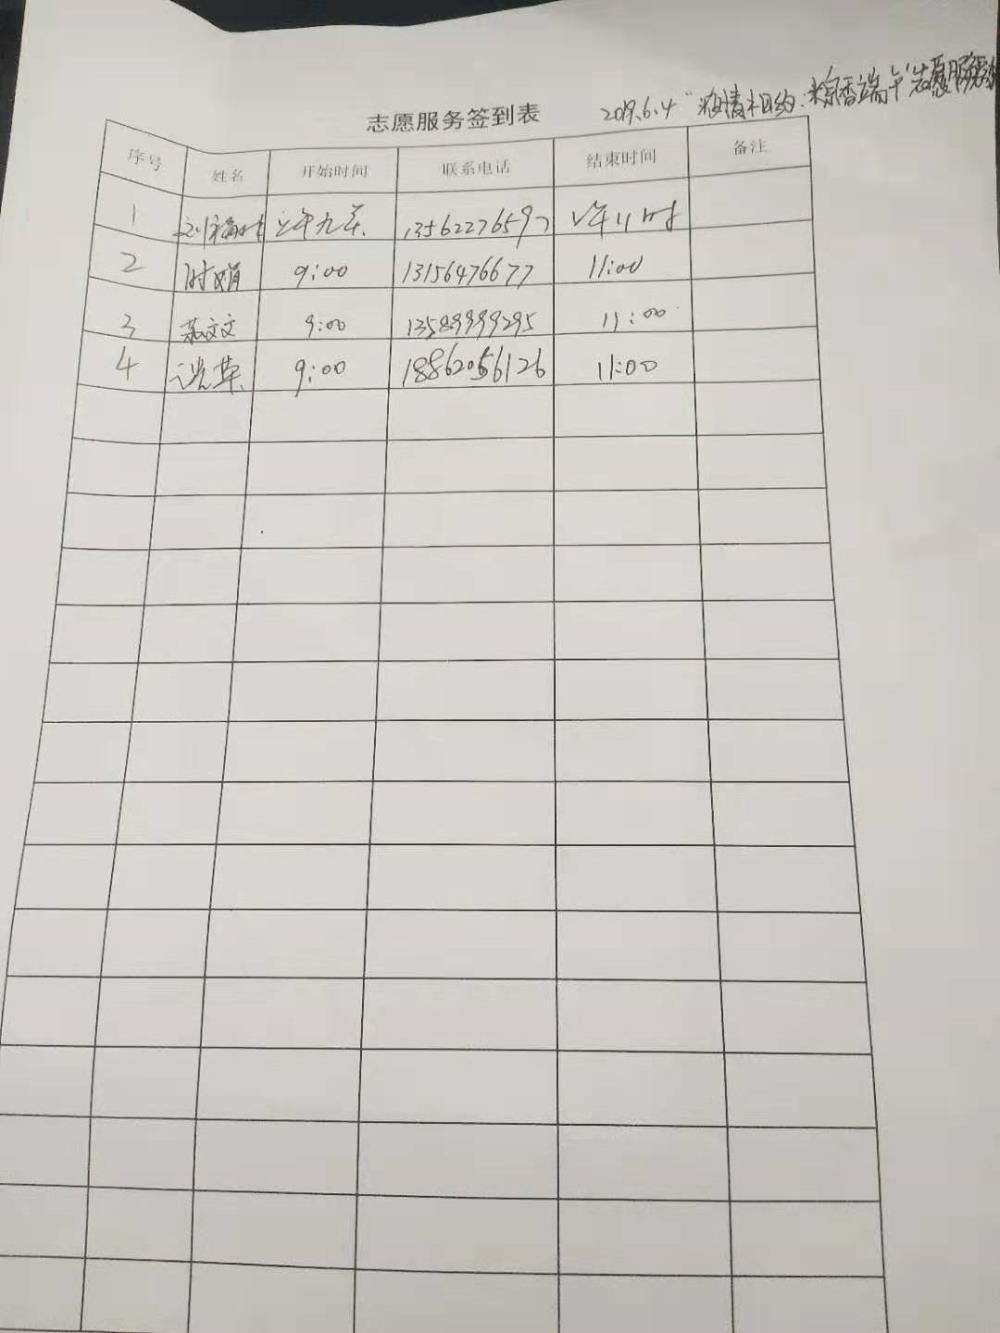 2019.6.4 "浓情相约.粽香端午"志愿服务
志愿服务签到表
序号 姓名 开始时间 联系电话 结束时间 备注
1 上午九 13562276597 午11时
2 时娟 9:00 13156476677 11:00
3 苏文文 9:00 13589999295 11:00
4 9:00 18862056126 11:00